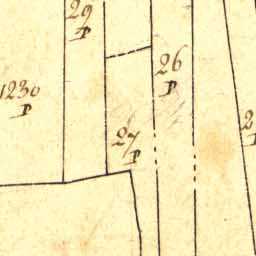 29
P
26
P
1230
P
27
P
2
P